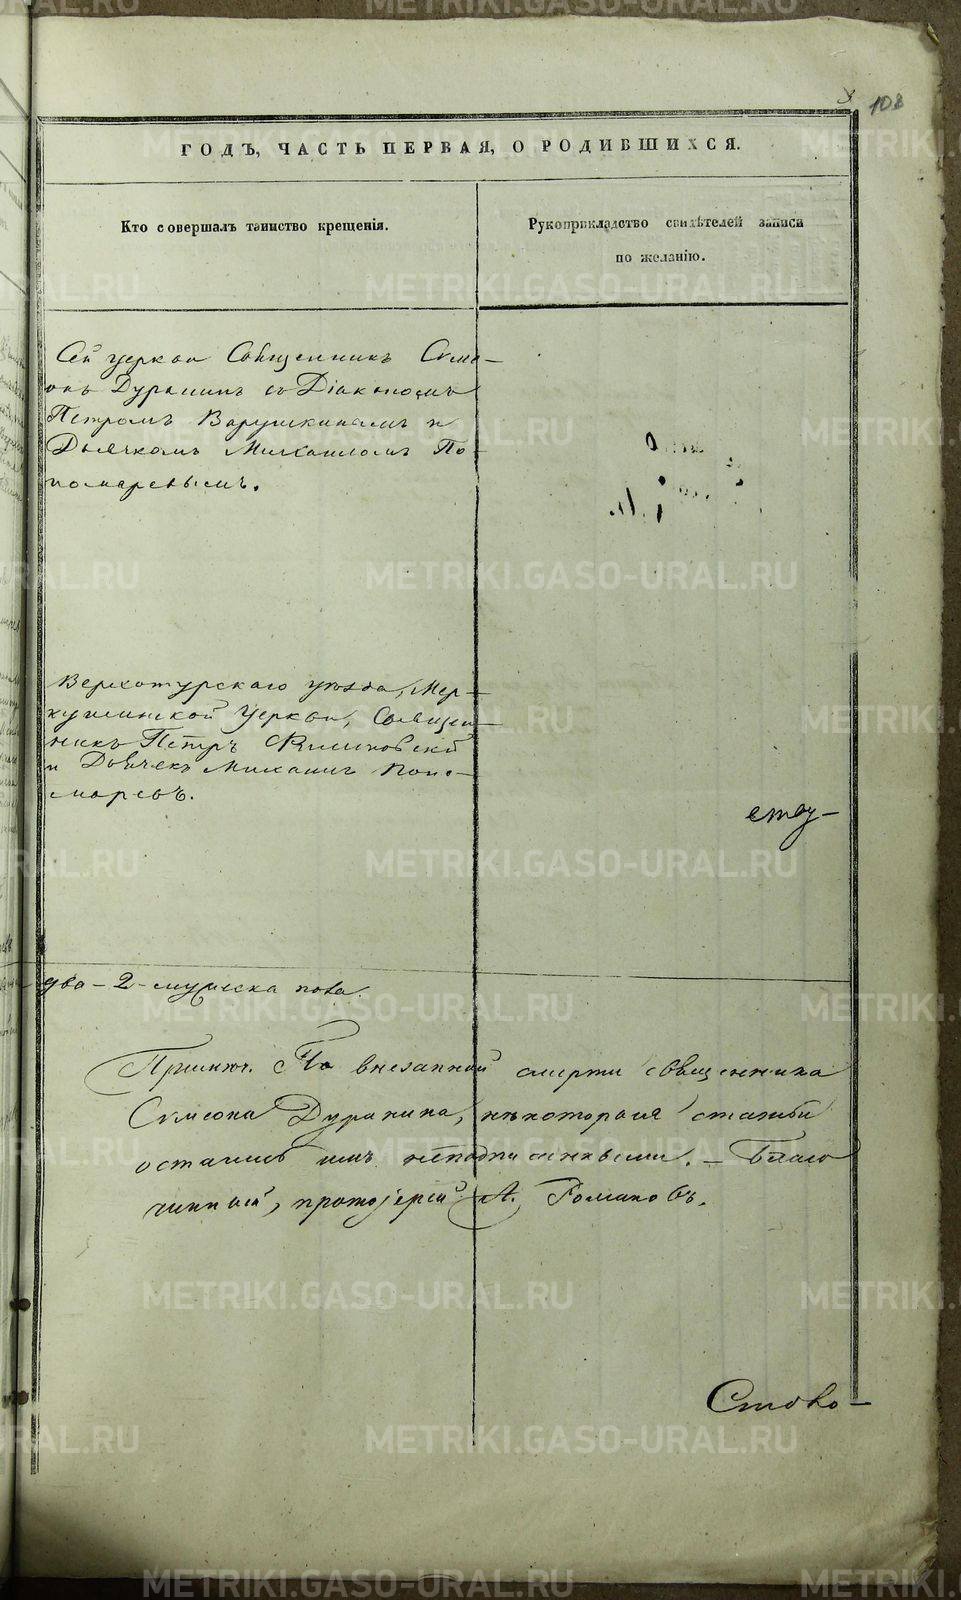 108
ГОДЪ, ЧАСТЬ ПЕРВАЯ, О РОДИВШИХСЯ.
Кто совершалъ таинство крещенія.
Рукоприкладство свидѣтелей записи
по желанію.
Сей церкви Священникъ Симе-
онъ Дуранинъ съ Діакономъ
Петромъ Варушкинымъ и
Дьячкомъ Михаиломъ По-
номаревымъ.
Верхотурскаго уѣзда, Мер-
кушинской Церкви, Священ-
никъ Петръ
и Дьячекъ Михаилъ Поно-
маревъ.
ству-
два - 2 - мужеска пола.
Примѣч. По внезапной смерти священника
Симеона Дуранина, нѣкоторыя статьи
остались имъ неподписанными. - Благо
чинный, протоіерей А. Романовъ.
Ство-
METRIKI.GASO-URAL.RU